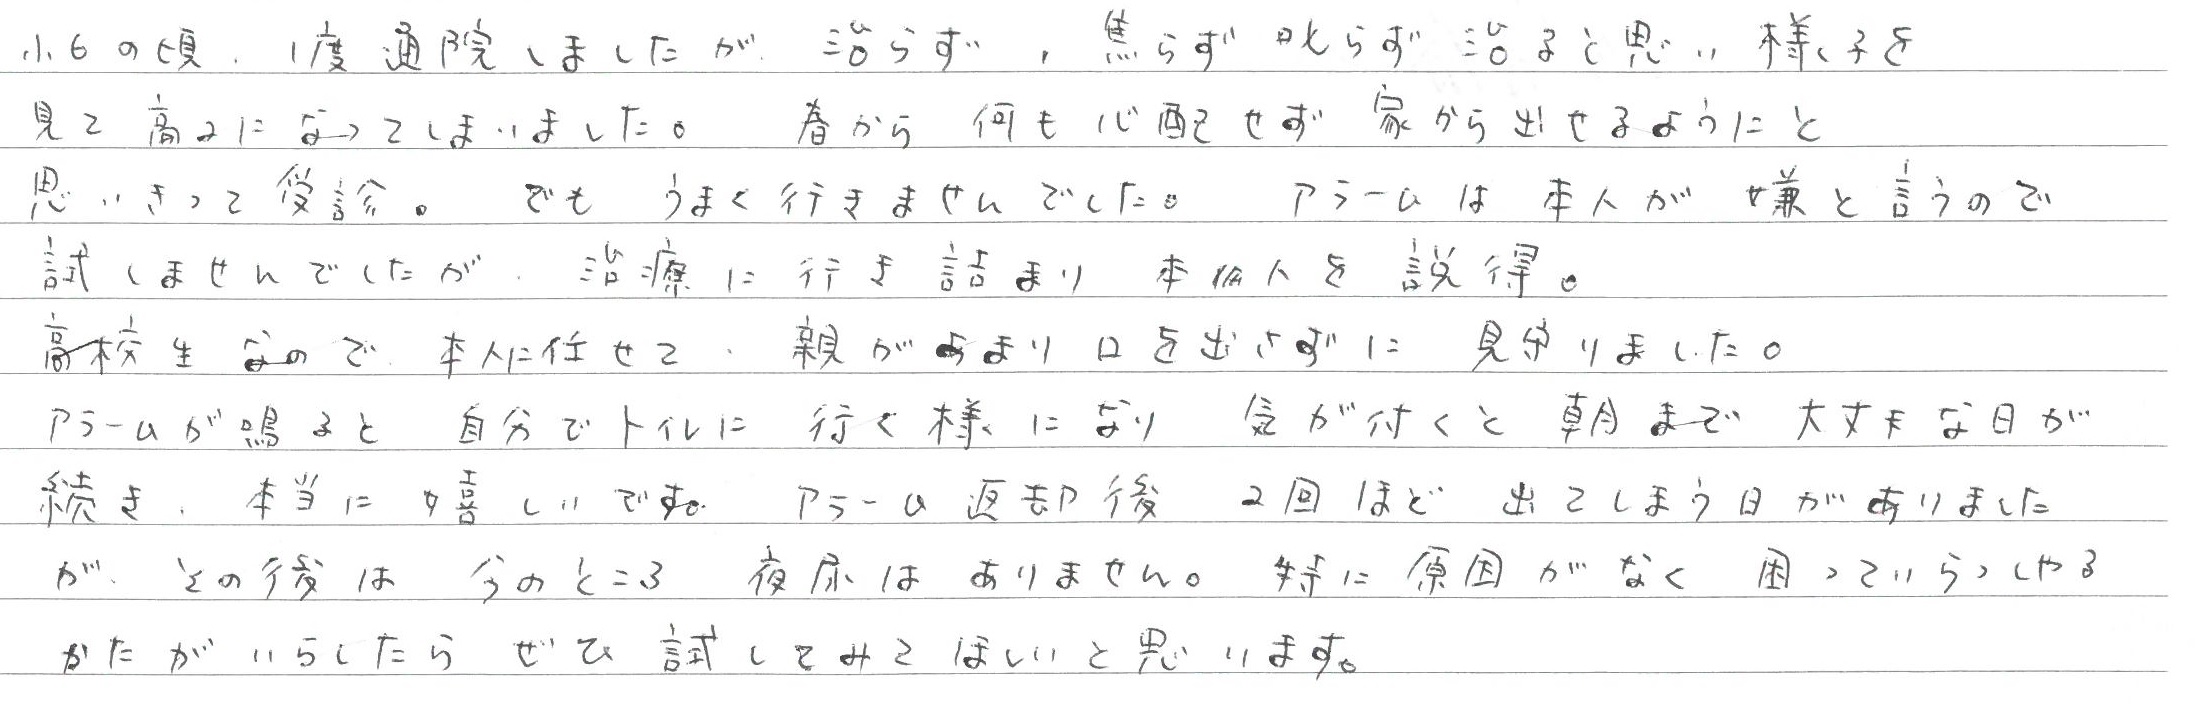 小6の頃、1度通院しましたが、治らず、焦らず叱らず治ると思い様子を
見て高2になってしまいました。 春から何も心配せず家から出せるようにと
思いきって受診。 でもうまく行きませんでした。 アラームは本人が嫌と言うので
試しませんでしたが、治療に行き詰まり本人を説得。
高校生なので、本人に任せて、親があまり口を出さずに見守りました。
アラームが鳴ると自分でトイレに行く様になり気が付くと朝まで大丈夫な日が
続き、本当に嬉しいです。アラーム返却後2回ほど出てしまう日がありました
が、その後は今のところ夜尿はありません。特に原因がなく困っていらっしゃる
かたがいらしたらぜひ試してみてほしいと思います。